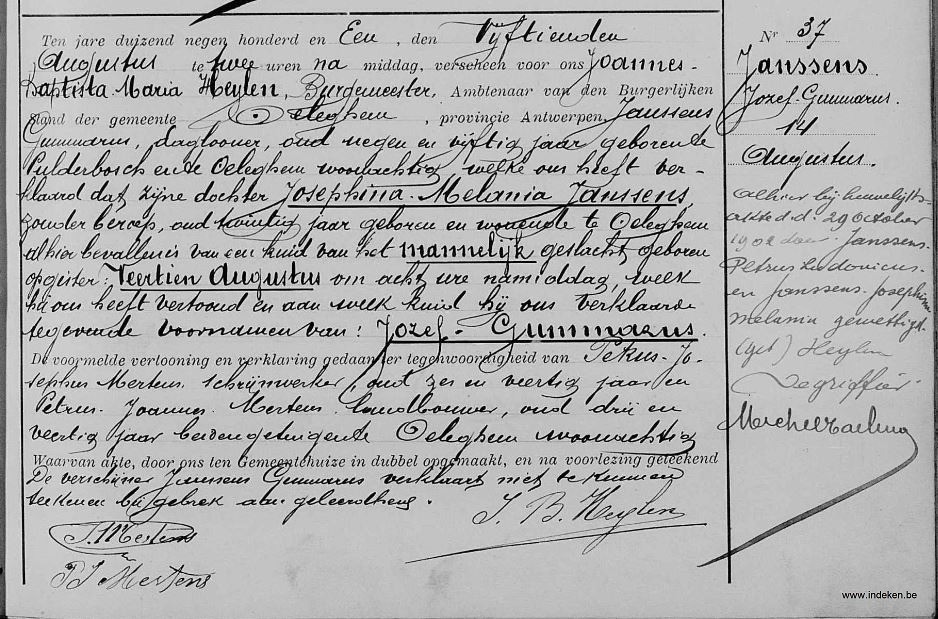 Ten jare duizend negen honderd en Een, den Vyftienden
Augustus te twee uren na middag, verscheen voor ons Joannes-
Baptista Maria Heylen, Burgemeester, Ambtenaar van den Burgerlijken
stand der gemeente Oeleghem, provincie Antwerpen, Janssens
Gummarus, daglooner, oud negen en vijftig jaar geboren te
Pulderbosch en te Oeleghem woonachtig welke ons heeft ver-
klaard dat zijne dochter Josephina-Melania Janssens,
zonder beroep, oud twintig jaar geboren en wonende te Oeleghem
alhier bevallen is van een kind van het mannelijk geslacht geboren
opgister: Veertien Augustus om acht ure namiddag, welk
hij ons heeft vertoond en aan welk kind hij ons verklaarde
te geven de voornamen van: Jozef-Gummarus.
De voormelde vertooning en verklaring gedaan ter tegenwoordigheid van Petrus-Jo-
sephus Mertens, schrijnwerker, oud zes en veertig jaar en
Petrus-Joannes Mertens landbouwer, oud drij en
veertig jaar beiden getuigen te Oeleghem woonachtig
Waarvan akte, door ons ten Gemeentehuize in dubbel opgemaakt, en na voorlezing geteekend
De verschijner Janssens Gummarus verklaart niet te kunnen
teekenen bij gebrek aan geleerdheid.
J. B. Heylen
P. J. Mertens
Nr 37
Janssens
Jozef-Gummarus.
14
Augustus.
Alhier bij huwelijks-
akte d.d. 29 October
1902 door Janssens-
Petrus Ludovicus-
en Janssens-Josephina
Melania gewettigd.
(get) Heylen
De griffier
www.indeken.be